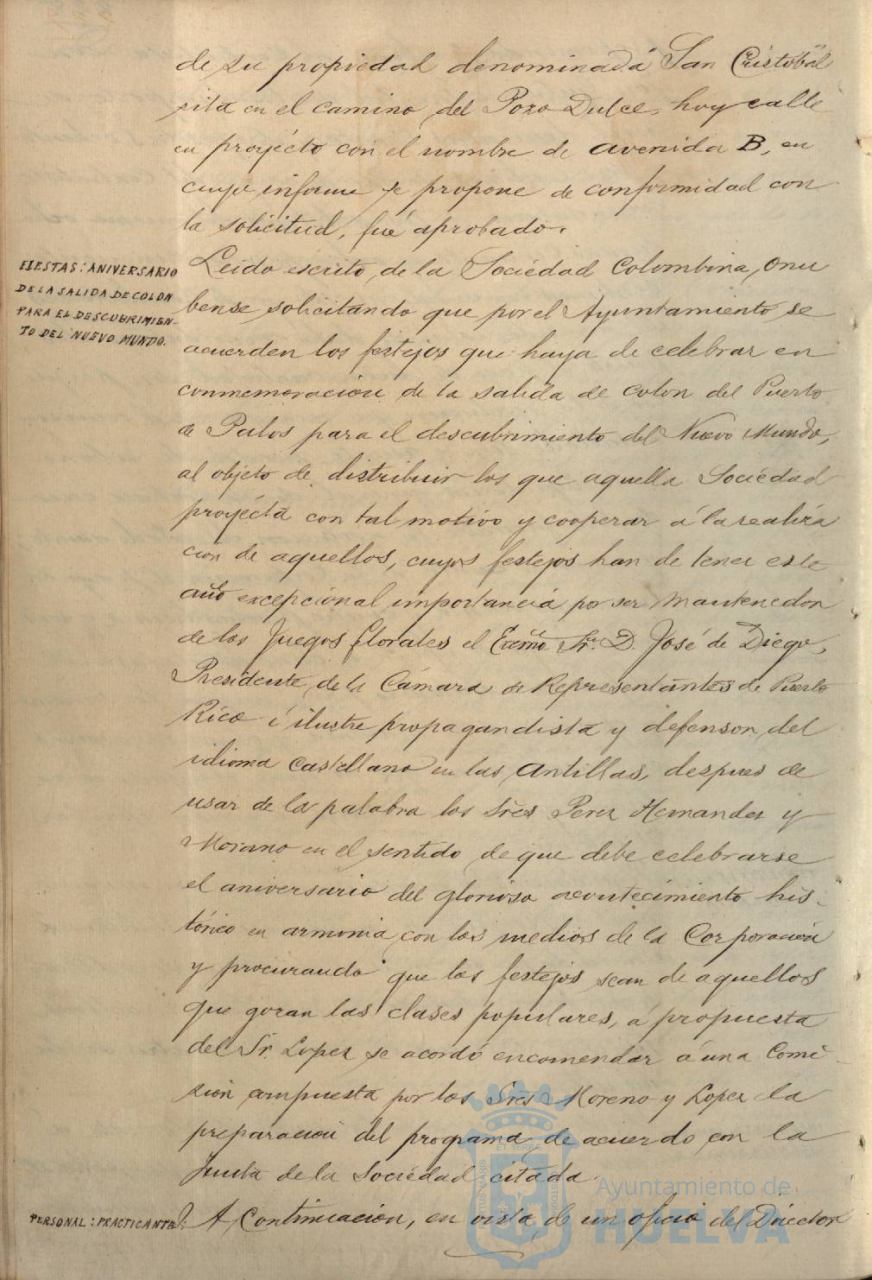 de su propiedad denominada San Cristóbal
sita en el camino del Pozo Dulce, hoy calle
en proyécto con el nombre de avenida B, en
cuyo informe se propone de conformidad con
la solicitud, fué aprobado.
FIESTAS: ANIVERSARIO
DE LA SALIDA DE COLON
PARA EL DESCUBRIMIEN-
TO DEL NUEVO MUNDO.
Leido escrito de la Sociedad Colombina, Onu
bense, solicitando que por el Ayuntamiento, se
acuerden los festejos que haya de celebrar en
conmemoracion de la salida de Colon del Puerto
de Palos para el descubrimiento del Nuevo Mundo,
al objeto de distribuir los que aquella Sociedad
proyécta con tal motivo y cooperar á la realiza
cion de aquellos, cuyos festejos han de tener este
año excepcional importancia por ser Mantenedor
de los Juegos florales el Excmo. Sr. D. José de Diego,
Presidente de la Cámara de Representantes de Puerto
Rico é ilustre propagandista y defensor del
idioma Castellano en las Antillas, despues de
usar de la palabra los Sres Perez Hernandez y
Moreno en el sentido de que debe celebrarse
el aniversario del glorioso acontecimiento his-
tórico en armonia con los medios de la Corporación
y procurando que los festejos sean de aquellos
que gozan las clases populares, á propuesta
del Sr. Lopez se acordó encomendar á una Comi-
sion compuesta por los Sres Moreno y Lopez la
preparacion del programa, de acuerdo con la
Junta de la Sociedad citada.
PERSONAL: PRACTICANTE
A Continuacion, en vista de un oficio del Director
Ayuntamiento de
HUELVA